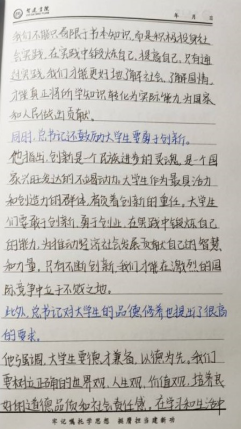 年 月 日
我们不能只局限于书本知识,而是积极投身社
会实践,在实践中锻炼自己,提高自己。只有通
过实践,我们才能更好地了解社会、了解国情,
才能真正将所学知识转化为实际能力,为国家
和人民做出贡献。
同时,总书记还鼓励大学生要勇于创新。
他指出,创新是一个民族进步的灵魂,是一个国
家兴旺发达的不竭动力。大学生作为最具活力
和创造力的群体,肩负着创新的重任。大学生
们要敢于创新、勇于创业,在实践中锻炼自己
的能力,为推动经济社会发展贡献自己的智慧
和力量。只有不断创新,我们才能在激烈的国
际竞争中立于不败之地。
此外,总书记对大学生的品德修养也提出了很高
的要求。
他强调,大学生要德才兼备,以德为先。我们
要树立正确的世界观、人生观、价值观,培养良
好的道德品质和社会责任感。在学习和生活中
牢记嘱托学思想 挺膺担当建新功